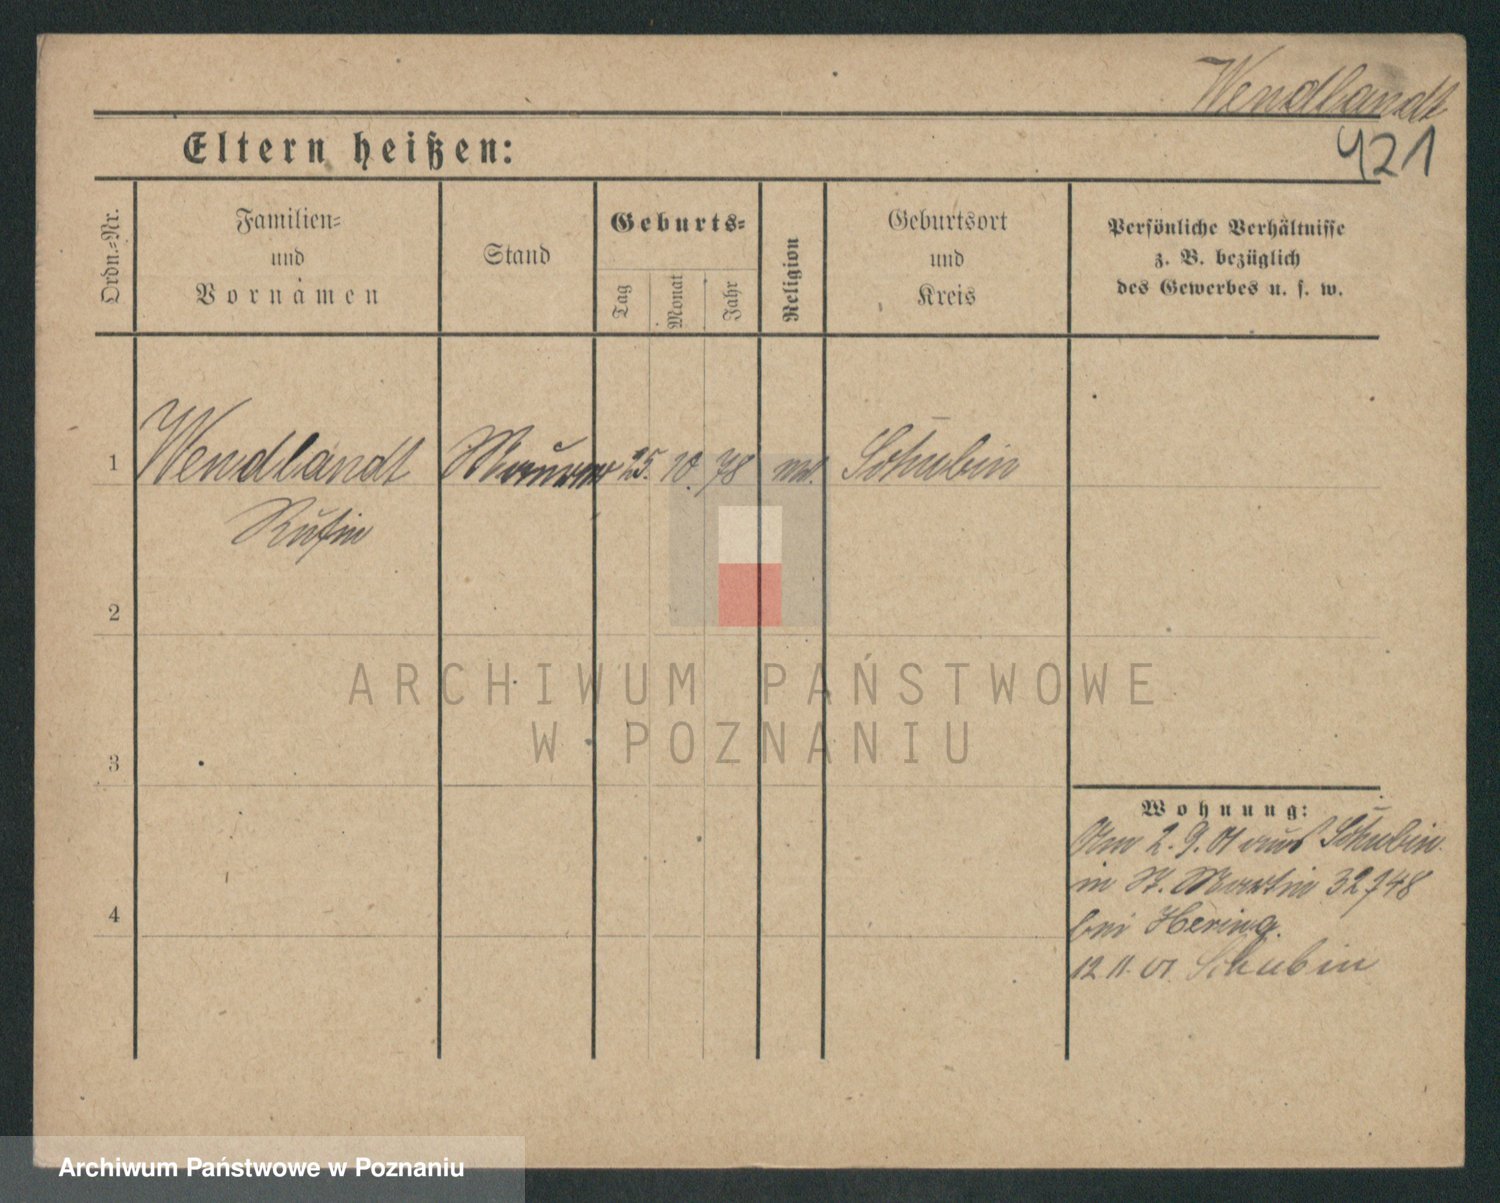 Wendlandt
421
Eltern heißen:
Ordn.-Nr.
Familien-
und
Vornamen
Stand
Geburts-
Tag
Monat
Jahr
Religion
Geburtsort
und
Kreis
Persönliche Verhältnisse
z. B. bezüglich
des Gewerbes u. s. w.
1 Wendlandt Maurer 25. 10. 78 Schubin
2
3
4
Wohnung:
Am 2. 9. 01 aus Schubin
in St. Martin 32/48
bei Hering.
12 11. 01 Schubin
ARCHIWUM PAŃSTWOWE
W POZNANIU
Archiwum Państwowe w Poznaniu